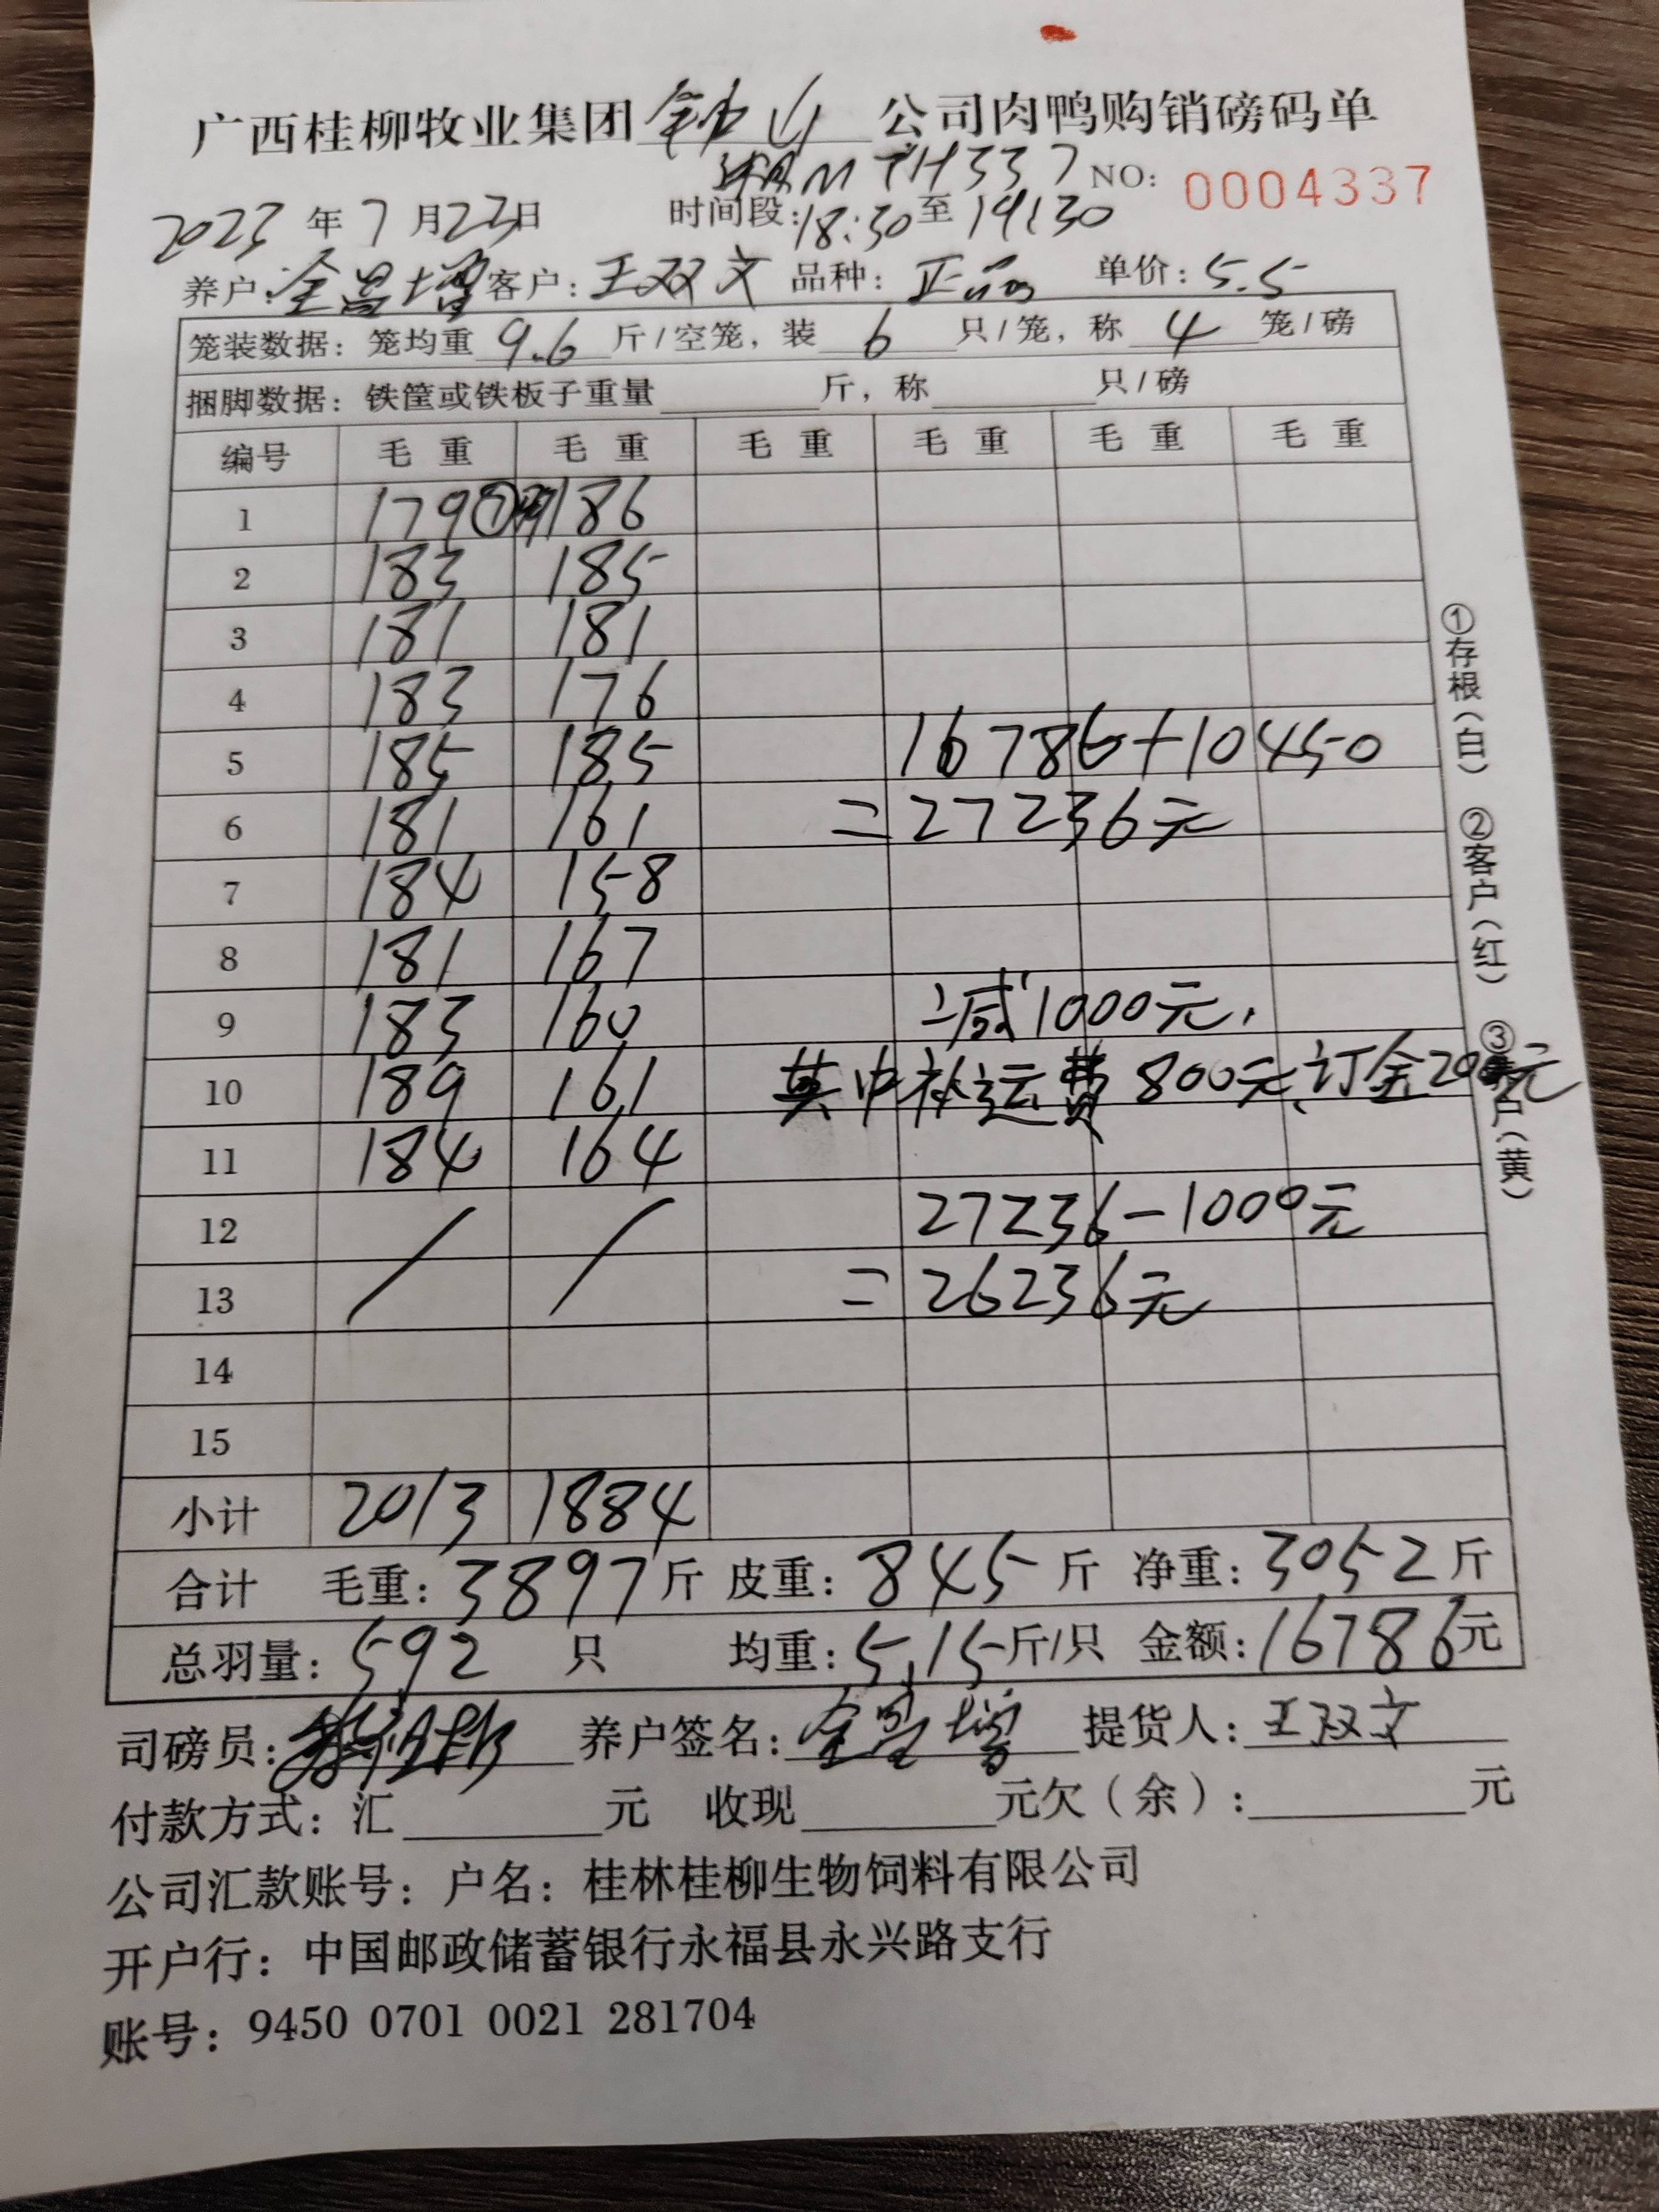 广西桂柳牧业集团钟山公司肉鸭购销磅码单
湘M7H337 NO: 0004337
2023年7月23日 时间段:18:30至19:30
养户:全昌增 客户:王双文 品种:正品 单价:5.5
笼装数据: 笼均重9.6斤/空笼, 装6只/笼, 称4笼/磅
捆脚数据: 铁筐或铁板子重量 斤, 称 只/磅
编号 毛重 毛重 毛重 毛重 毛重 毛重
1 179 ⑦ 186
2 183 185
3 181 181
4 183 176
5 185 185 16786+10450
6 181 161 =27236元
7 184 158
8 181 167
9 183 160 减1000元,
10 189 161 其中补运费800元、订金200元
11 184 164
12 / / 27236-1000元
13 =26236元
14
15
小计 2013 1884
合计 毛重:3897斤 皮重:845斤 净重:3052斤
总羽量:592只 均重:5.15斤/只 金额:16786元
司磅员: 养户签名:全昌增 提货人:王双文
付款方式: 汇 元 收现 元欠(余): 元
公司汇款账号: 户名: 桂林桂柳生物饲料有限公司
开户行: 中国邮政储蓄银行永福县永兴路支行
账号: 9450 0701 0021 281704
①存根(白) ②客户(红) ③户(黄)